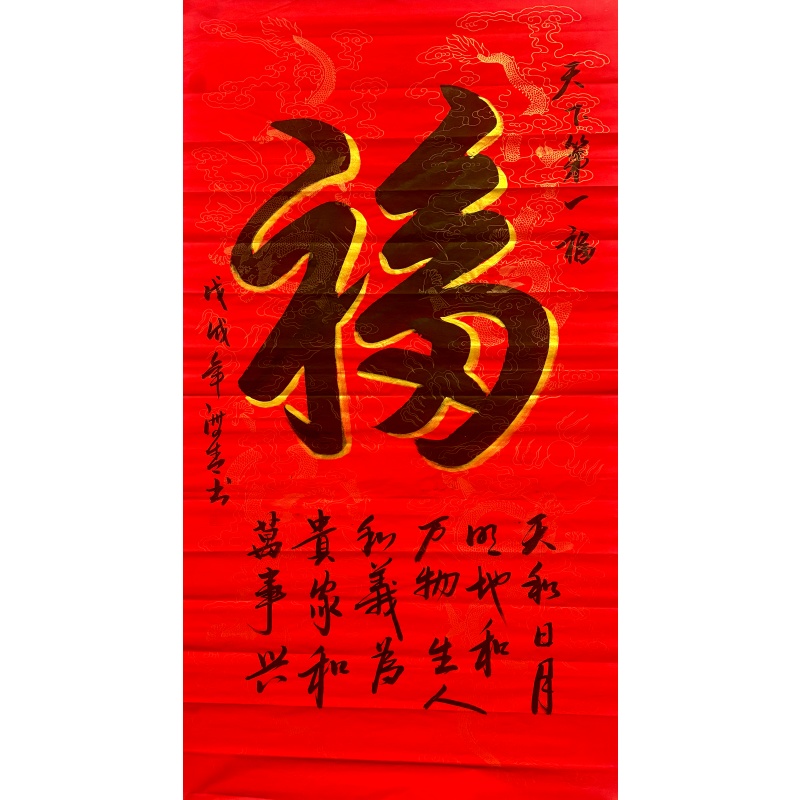 天下第一福
福
天和日月
明地和
万物生人
和義為
貴家和
萬事兴
戊戌年书